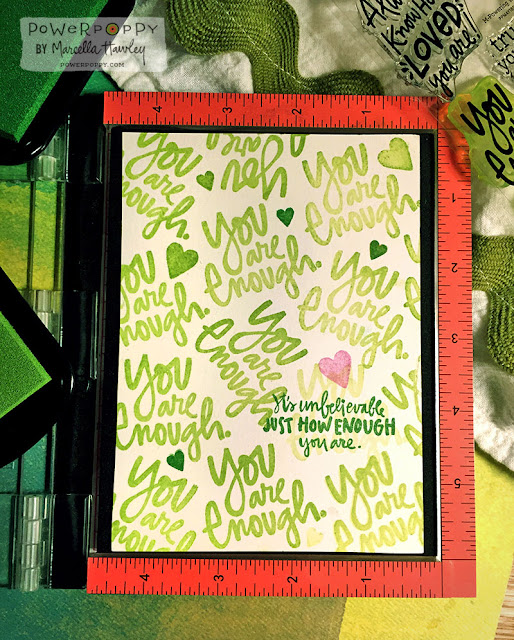 POWERPOPPY
BY Marcella Hawley
POWERPOPPY.COM
Know How
LOVED
you are.
You
You
are
enough.
You
are
You
are
enough.
You
are
enough.
You
are
enough.
You
are
enough.
You
are
enough.
You
are
enough.
It's unbelievable
JUST HOW ENOUGH
you are.
You
are
enough.
You
are
enough.
You
are
enough.
You
are
enough.
4 3 2 1 1 2 3 4
1
2
3
4
5
4 3 2 1 1 2 3 4